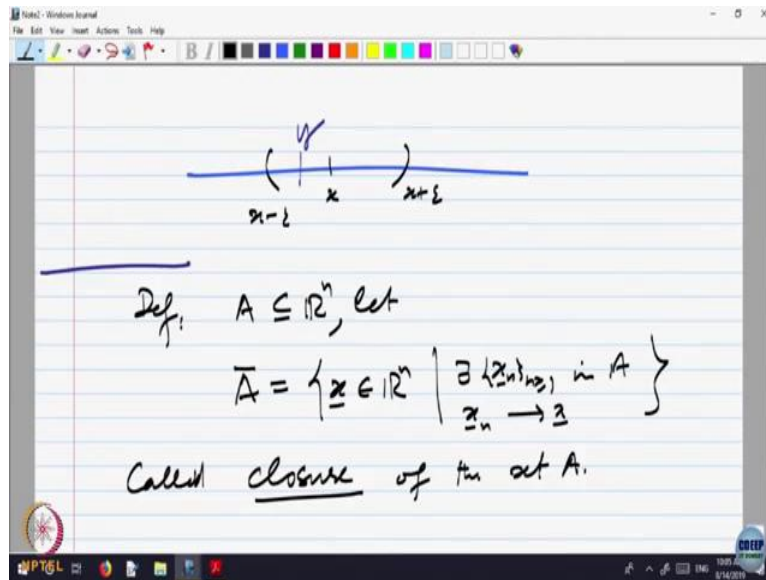 Note2 - Windows Journal
File Edit View Insert Actions Tools Help
B I
y
( | | )
x-ε x x+ε
Def. A ⊆ ℝⁿ, let
Ā = { x ∈ ℝⁿ | ∃ {xₙ}ₙ≥₁ in A
xₙ → x }
Called closure of the set A.
NPTEL
CDEEP
IIT BOMBAY
ENG
8/14/2019